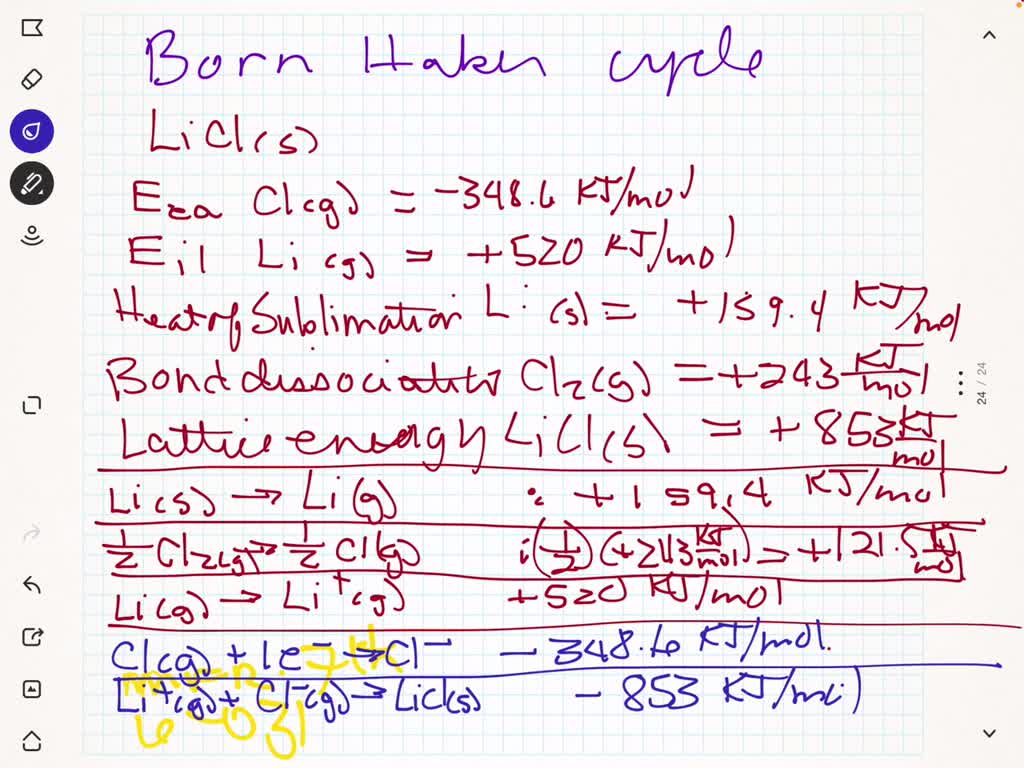 Born Haber cycle
LiCl(s)
Eea Cl(g) = -348.6 KJ/mol
Ei1 Li(g) = +520 KJ/mol
Heat of Sublimation Li(s) = +159.4 KJ/mol
Bond dissociation Cl2(g) = +243 KJ/mol
Lattice energy LiCl(s) = +853 KJ/mol
Li(s) → Li(g) : +159.4 KJ/mol
1/2 Cl2(g) → 1/2 Cl(g) : (1/2)(+243 KJ/mol) = +121.5 KJ/mol
Li(g) → Li+(g) +520 KJ/mol
Cl(g) + 1e- → Cl- - 348.6 KJ/mol.
Li+(g) + Cl-(g) → LiCl(s) - 853 KJ/mol
24 / 24